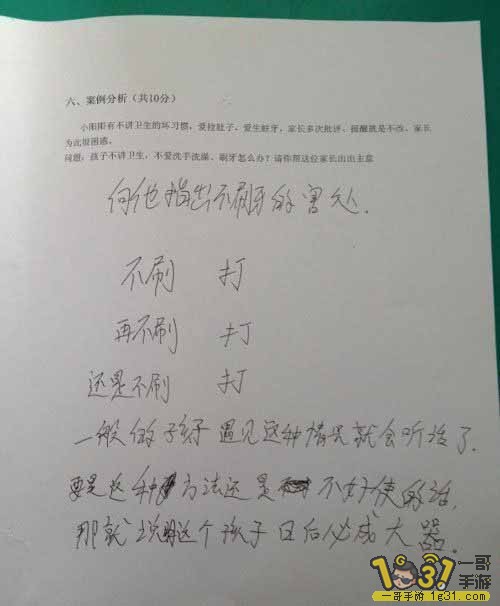 六、案例分析（共10分）
小阳阳有不讲卫生的坏习惯，爱拉肚子、爱生蛀牙，家长多次批评、提醒就是不改，家长
为此很困惑。
问题：孩子不讲卫生，不爱洗手洗澡、刷牙怎么办？请你帮这位家长出出主意
向他指出不刷牙的害处.
不刷 打
再不刷 打
还是不刷 打
一般的孩子遇见这种情况就会听话了.
要是这种方法还是不好使的话,
那就说明这个孩子日后必成大器.
1931 一哥手游
一哥手游 1g31.com